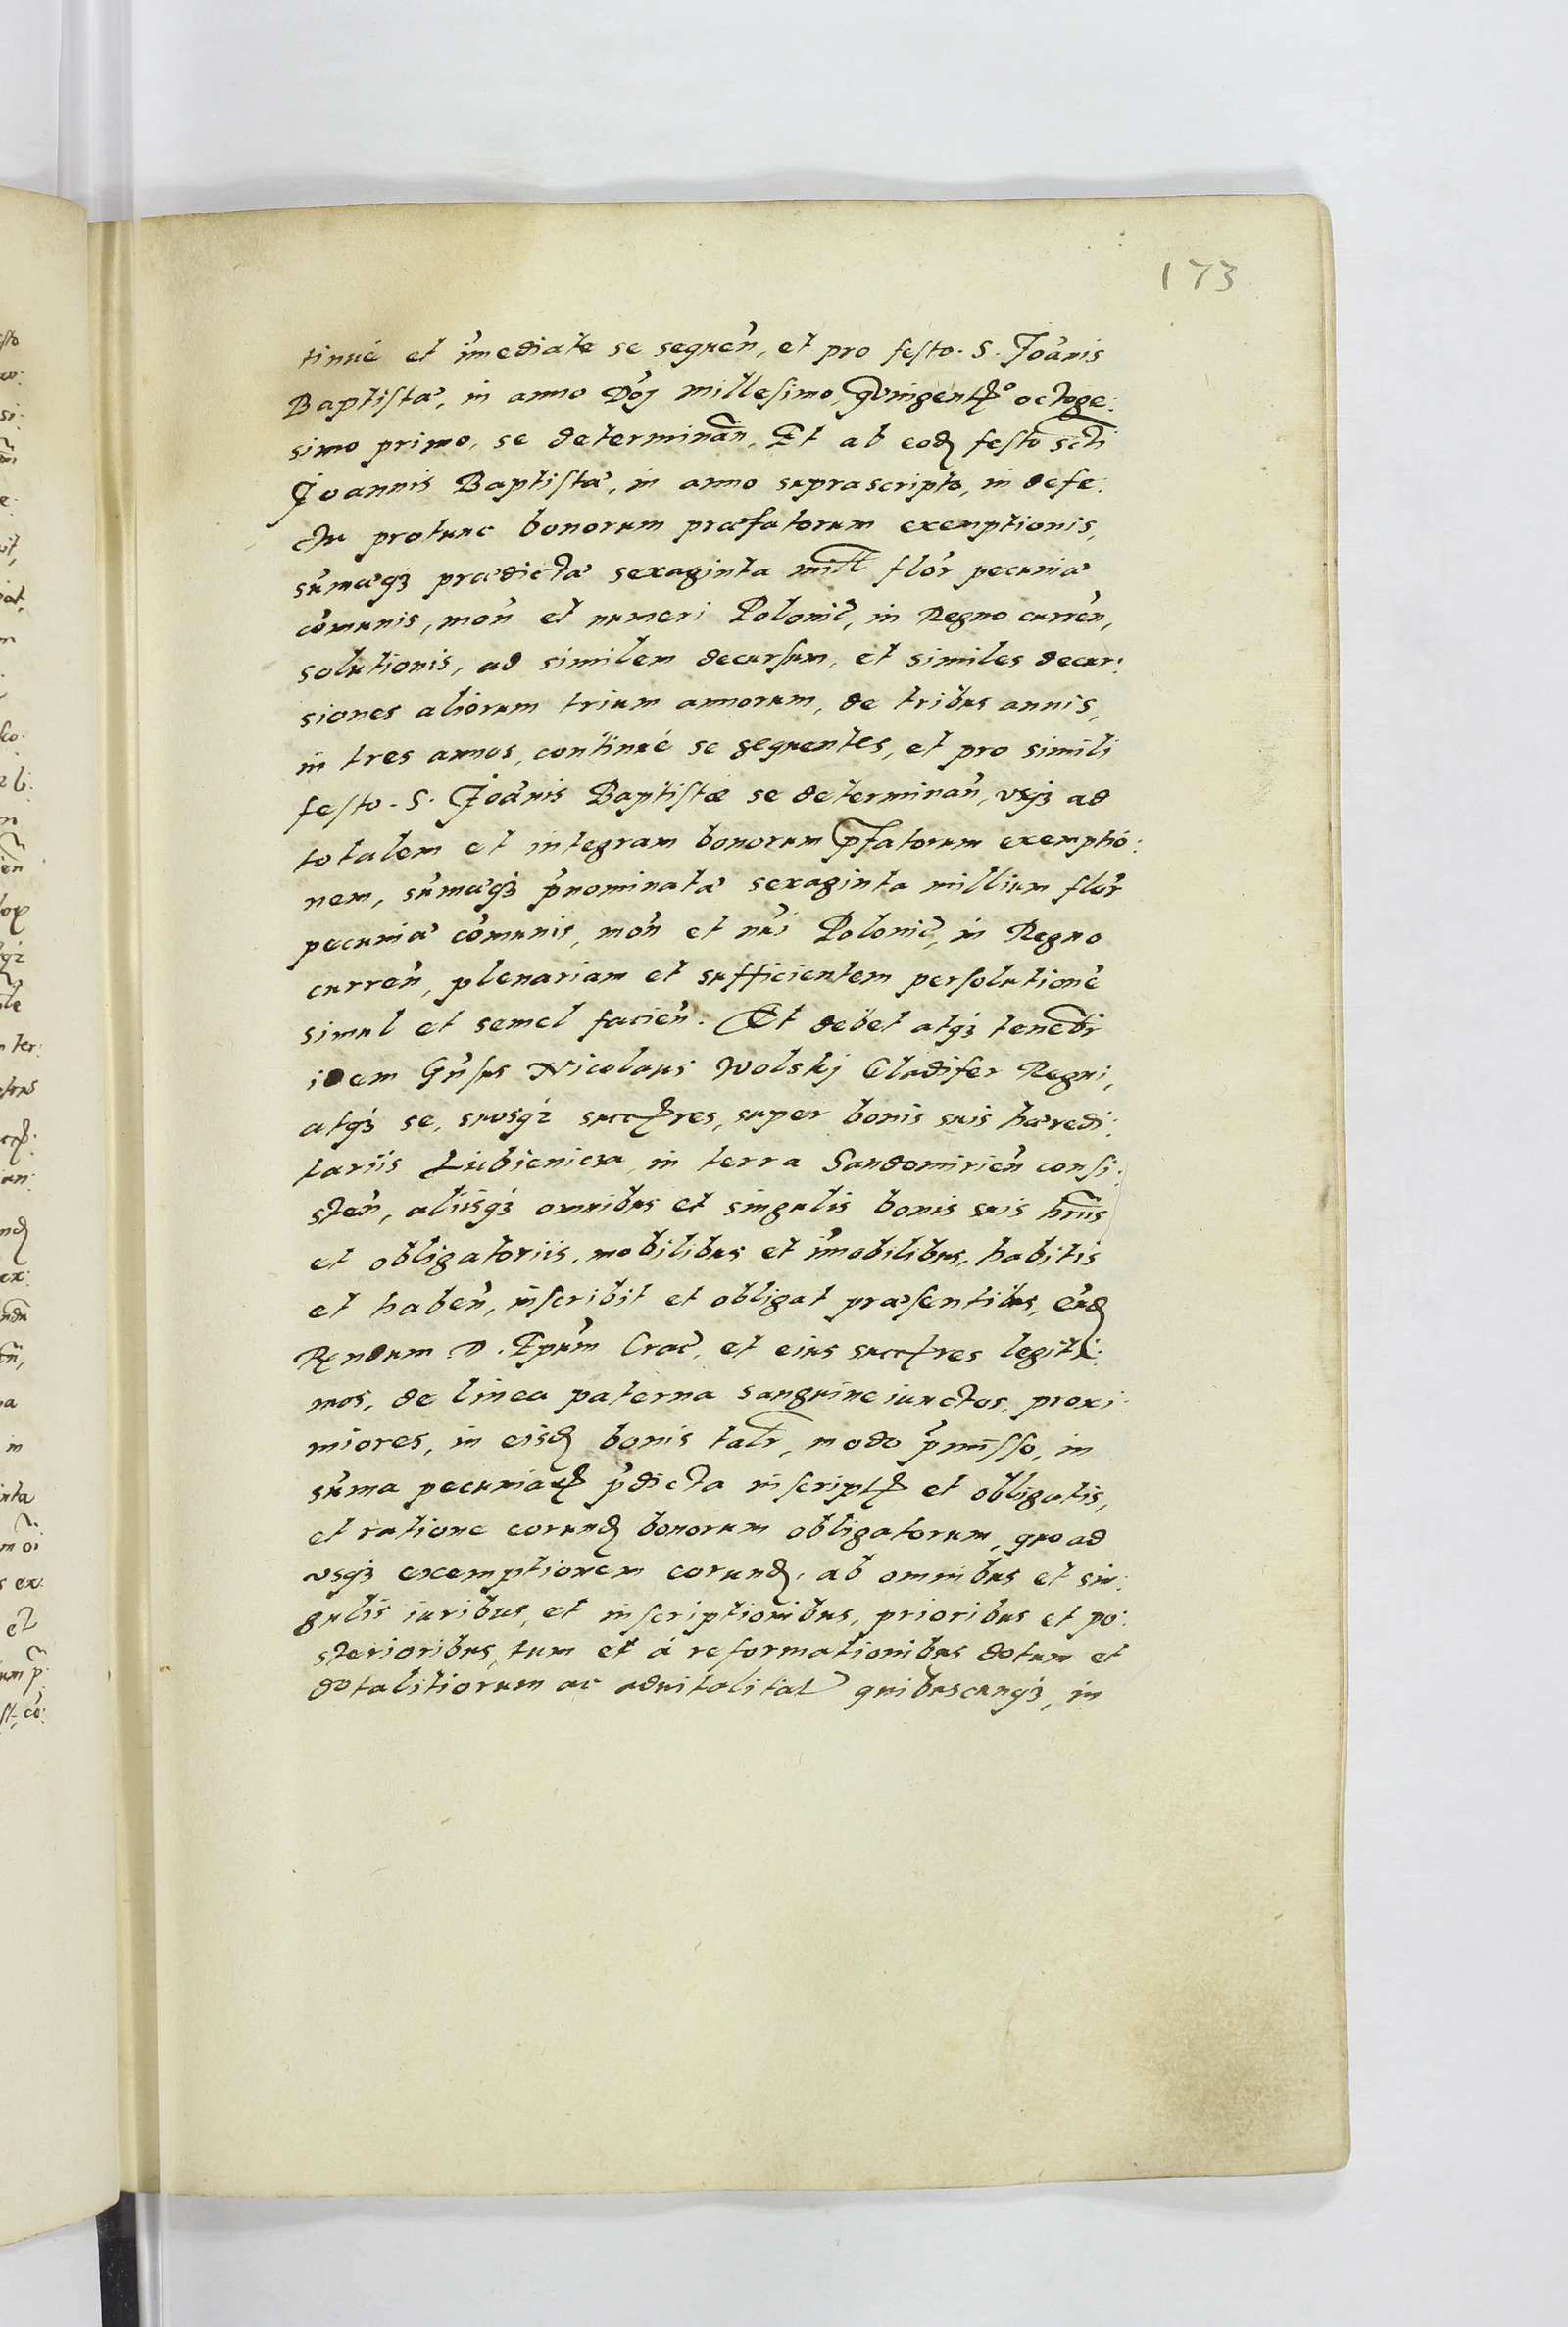 173
tinué et im̃ediate se sequeñ, et pro festo . S . Joãnis
Baptistæ, in anno Dñj millesimo quingentꝭᵒ octoge:
simo primo, se determinañ, Et ab eodꝫ festo scti
Joannis Baptistæ, in anno suprascripto, in defe:
ctu protunc bonorum præfatorum exemptionis,
sum̃æqꝫ prædictæ sexaginta mill flor̃ pecuniæ
com̃unis, moñ et numeri Poloni̇c̃, in Regno curreñ,
solutionis, ad similem decursum, et similes decur:
siones aliorum trium annorum, de tribus annis,
in tres annos, continué se sequentes, et pro simili
festo . S . Joãnis Baptistæ se determinañ, vsqꝫ ad
totalem et integram bonorum pfatorum exemptio:
nem, sum̃æqꝫ p̃nominatæ sexaginta millium flor̃
pecuniæ com̃unis, moñ et nr̃i Polonic̃, in Regno
curreñ, plenariam et sufficientem persolutionẽ
simul et semel facieñ. Et debet atqꝫ tenebr̃
idem Gñsus Nicolaus Wolskj Ẽladifer Regni,
atqꝫ se, suosqꝫ succꝭres, super bonis suis hæredi:
tariis Lubienicza in terra Sandomirieñ consi:
steñ, aliisqꝫ omnibus et singulis bonis suis hr̃iis
et obligatoriis, mobilibus et im̃obilibus, habitis
et habeñ, inscribit et obligat præsentibus, eũdꝫ
Rñdum D . Epum̃ Crac̃, et eius succꝭres legiti:
mos, de linea paterna sanguine iunctos, proxi:
miores, in eisdꝫ bonis talr̃, modo p̃misso, in
sum̃a pecuniarꝭ p̃dicta inscriptꝭ et obligatis,
et ratione eorundꝫ bonorum obligatorum, quo ad
vsqꝫ exemptionem eorundꝫ, ab omnibus et sin:
gulis iuribus, et inscriptionibus, prioribus et po:
sterioribus, tum et á reformationibus dotum et
dotalitiorum ac aduitalitat̃ quibuscunqꝫ, in